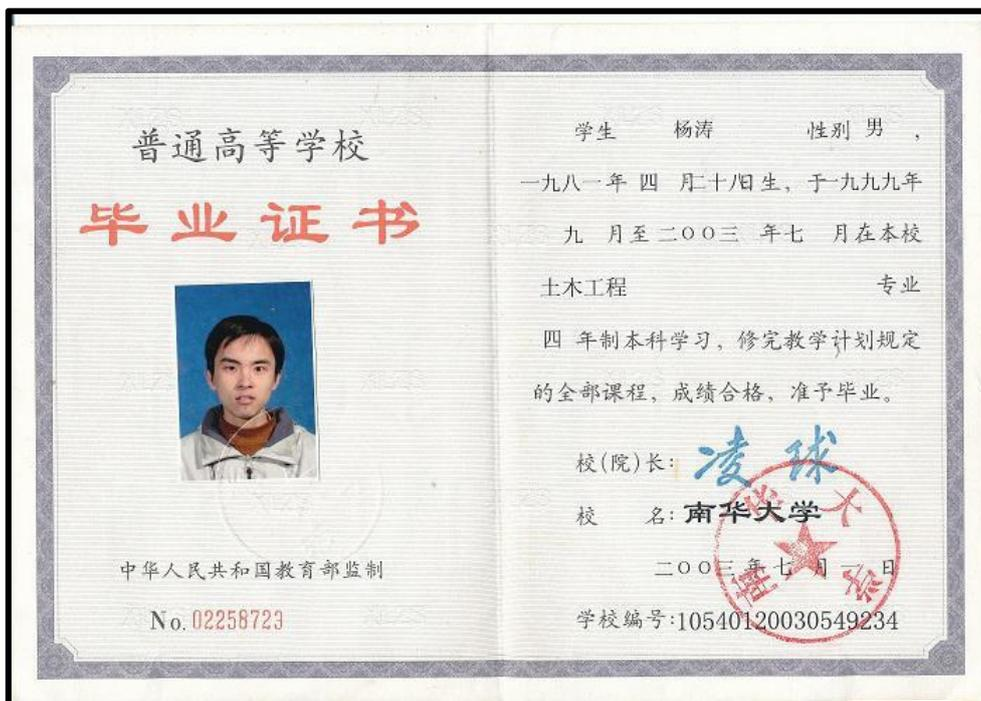 普通高等学校
毕业证书
中华人民共和国教育部监制
No. 02258723
学生 杨涛 性别 男 ，
一九八一年 四 月二十八日生，于一九九九年
九 月至 二〇〇三 年七 月在本校
土木工程 专业
四 年制本科学习，修完教学计划规定
的全部课程，成绩合格，准予毕业。
校(院)长: 凌球
校 名: 南华大学
二〇〇三年七月一日
学校编号:10540120030549234
南华大学